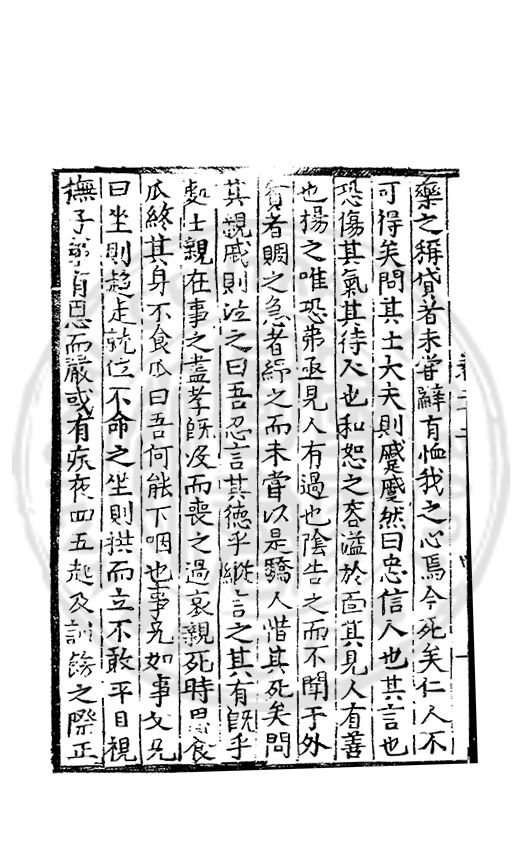 藥之稱貸者未嘗辭有恤我之心焉今死矣仁人不
可得矣問其士大夫則蹙蹙然曰忠信人也其言也
恐傷其氣其待人也和恕之容溢於面其見人有善
也揚之唯恐弗亟見人有過也陰告之而不聞于外
貧者賙之急者紓之而未嘗以是驕人惜其死矣問
其親戚則泣之曰吾忍言其德乎縱言之其有既乎
處士親在事之盡孝既没而喪之過哀親死時思食
瓜終其身不食瓜曰吾何能下咽也事兄如事父兄
曰坐則趨走就位不命之坐則拱而立不敢平目視
撫子弟有恩而嚴或有疾夜四五起及訓飭之際正